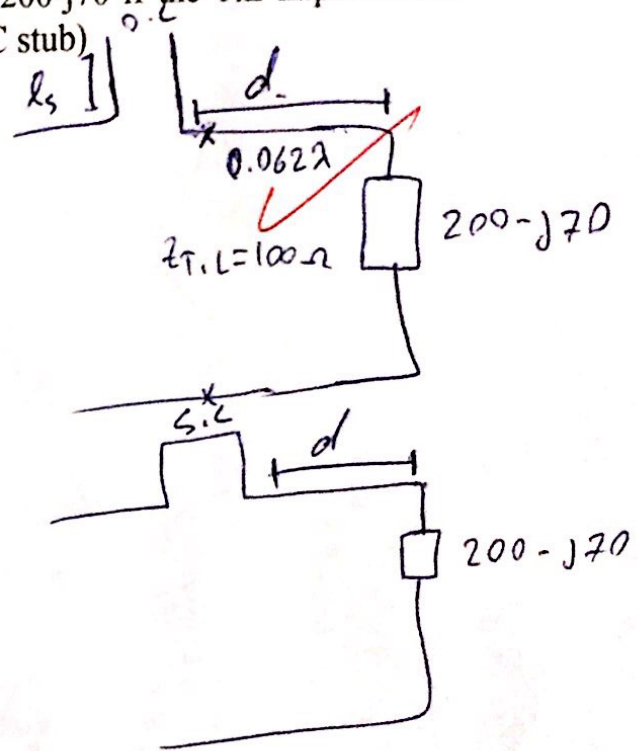 200-j70
C stub)
O.C
ls
d.
0.062λ
zT.L=100Ω
200-j70
S.C
d
200-j70